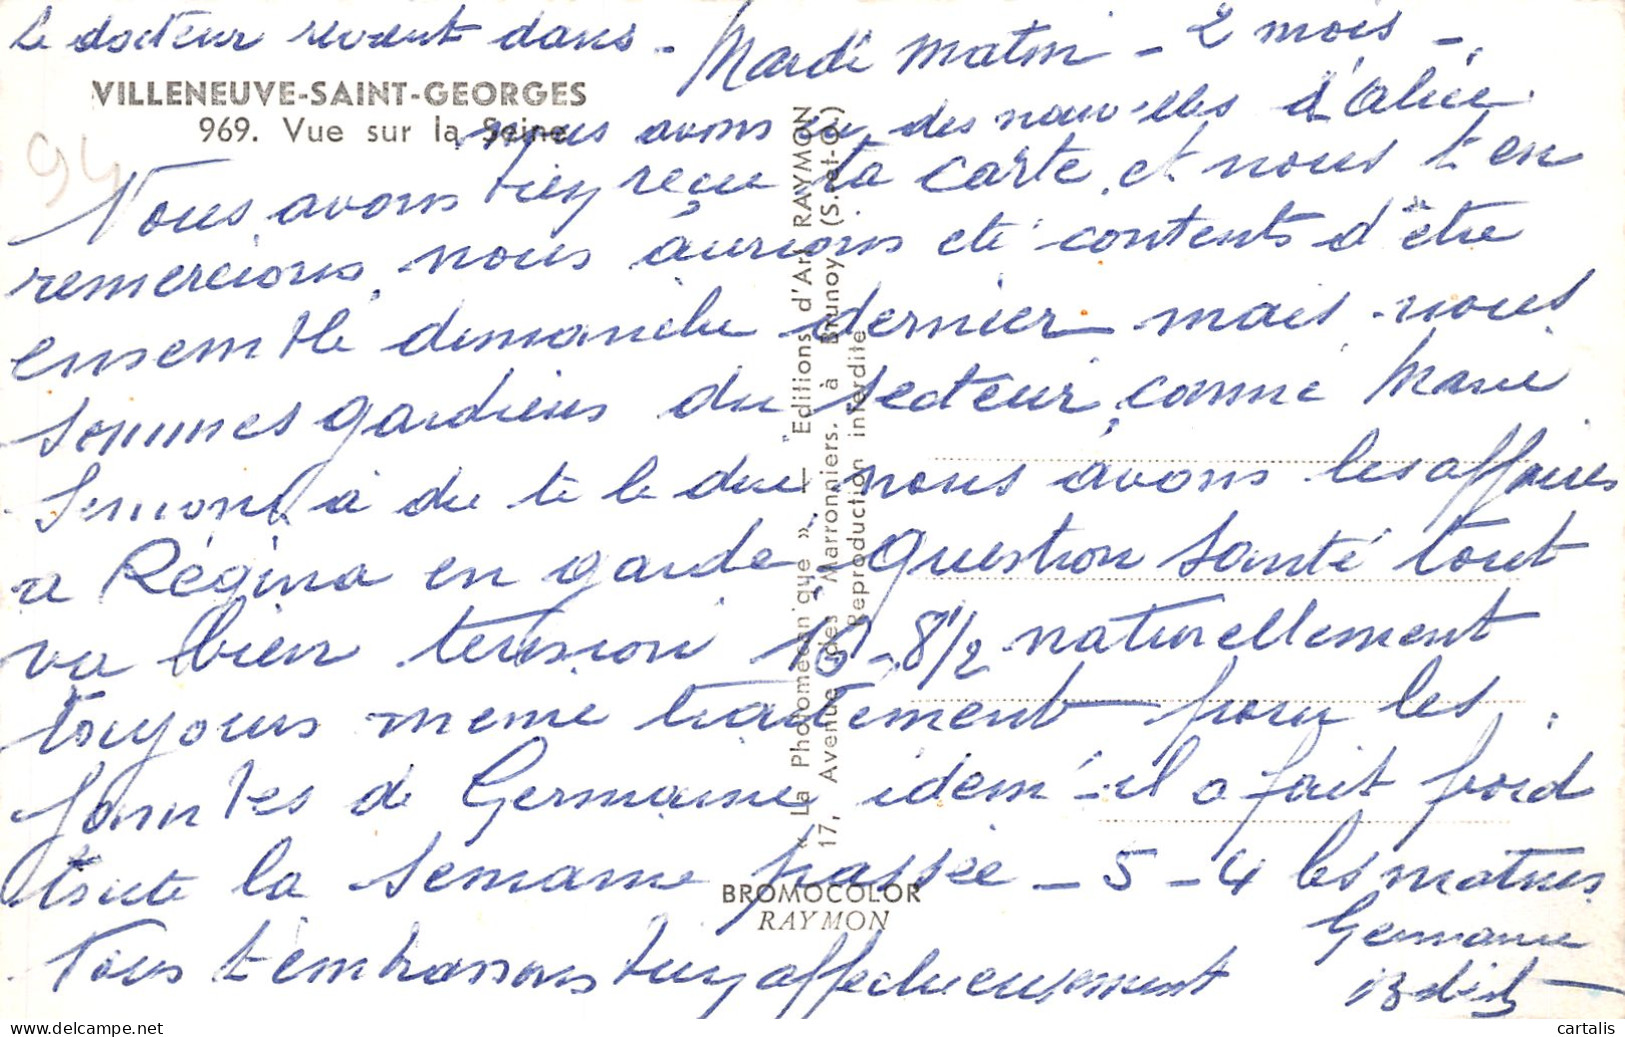 le docteur revient dans - Mardi matin - 2 mois -
VILLENEUVE-SAINT-GEORGES
969. Vue sur la Seine
94
nous avons eu des nouvelles d'Alice
Nous avons bien reçue ta carte et nous t'en
remercions, nous aurions été contents d'être
ensemble dimanche dernier mais nous
sommes gardiens du secteur, comme Marie
Simone a du te le dire nous avons les affaires
a Régina en garde question santé tout
va bien tension 16 - 8 1/2 naturellement
toujours même traitement pour les
jambes de Germaine idem - il a fait froid
toute la semaine passée - 5 - 4 les matins
Tous t'embrassons bien affectueusement
Germaine
« La Photomécanique » — Editions d'Art RAYMON
17, Avenue des Marronniers, à Brunoy (S.-et-O.)
Reproduction interdite
BROMOCOLOR
RAYMON
cartalis